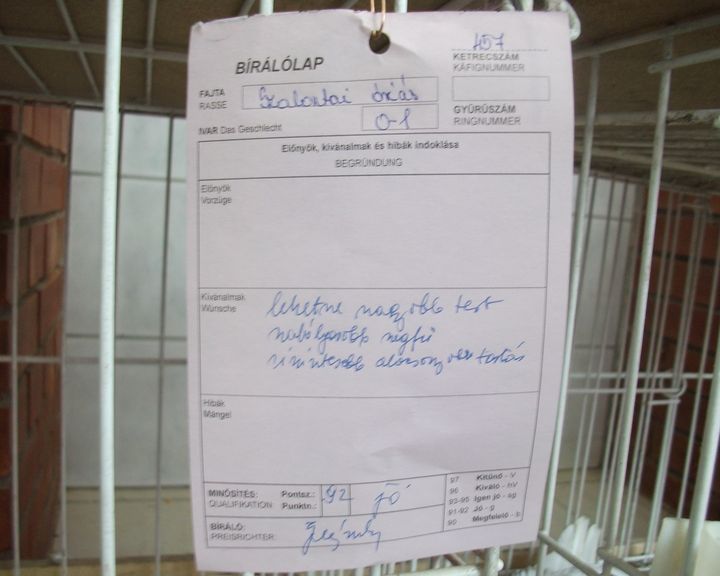 457
BÍRÁLÓLAP
KETRECSZÁM
KÄFIGNUMMER
FAJTA Szalontai óriás
RASSE
IVAR Das Geschlecht 0-1
GYŰRŰSZÁM
RINGNUMMER
Előnyök, kívánalmak és hibák indoklása
BEGRÜNDUNG
Előnyök
Vorzüge
Kívánalmak
Wünsche
lehetne nagyobb test
alacsony tartás
Hibák
Mängel
MINŐSÍTÉS: Pontsz.: 92 jó
QUALIFIKATION: Punktn.:
BÍRÁLÓ:
PREISRICHTER:
97 Kitűnő - V
96 Kiváló - hV
93-95 Igen jó - sg
91-92 Jó - g
90 Megfelelő - b